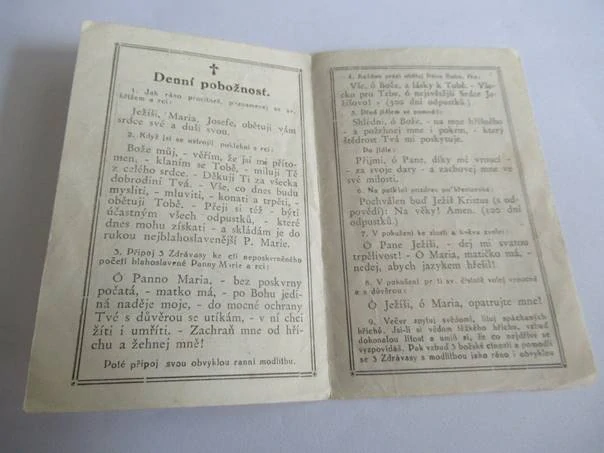 Denní pobožnost.
1. Jak ráno procitneš, poznamenej se sv.
křížem a rci:
Ježíši, Maria, Josefe, obětuji vám
srdce své a duši svou.
2. Když jsi se ustrojil, poklekni a rci:
Bože můj, - věřím, že jsi mi přito-
men, - klaním se Tobě, - miluji Tě
z celého srdce. - Děkuji Ti za všecka
dobrodiní Tvá. - Vše, co dnes budu
mysliti, - mluviti, - konati a trpěti, -
obětuji Tobě. - Přeji si též - býti
účastným všech odpustků, - kterých
dnes mohu získati - a skládám je do
rukou nejblahoslavenější P. Marie.
3. Připoj 3 Zdrávasy ke cti neposkvrněného
početí blahoslavené Panny Marie a rci:
Ó Panno Maria, - bez poskvrny
počatá, - matko má, - po Bohu jedi-
ná naděje moje, - do mocné ochrany
Tvé s důvěrou se utíkám, - v ní chci
žíti i umříti. - Zachraň mne od hří-
chu a žehnej mně!
Poté připoj svou obvyklou ranní modlitbu.
4. Každou práci obětuj Pánu Bohu, řka:
Vše, ó Bože, z lásky k Tobě. - Vše-
cko pro Tebe, ó nejsvětější Srdce Je-
žíšovo! - (300 dní odpustků.)
5. Před jídlem se pomodli:
Shlédni, ó Bože, - na mne hříšného
- a požehnej mne i pokrm, - který
štědrost Tvá mi poskytuje.
Po jídle:
Přijmi, ó Pane, díky mé vroucí -
- za svoje dary - a zachovej mne
ve své milosti.
6. Na potkání pozdrav po křesťansku:
Pochválen buď Ježíš Kristus (s od-
povědí): Na věky! Amen. (100 dní
odpustků.)
7. V pokušení ke zlosti a hněvu zvolej:
Ó Pane Ježíši, - dej mi svatou
trpělivost! - Ó Maria, matičko má,
- nedej, abych jazykem hřešil!
8. V pokušení proti sv. čistotě volej vroucně
a s důvěrou:
Ó Ježíši, ó Maria, opatrujte mne!
9. Večer zpytuj svědomí, lituj spáchaných
hříchů. Jsi-li si vědom těžkého hříchu, vzbuď
dokonalou lítost a umiň si, že co nejdříve se
vyzpovídáš. Pak vzbuď 3 božské ctnosti a pomodli
se 3 Zdrávasy s modlitbou jako ráno i obvyklou